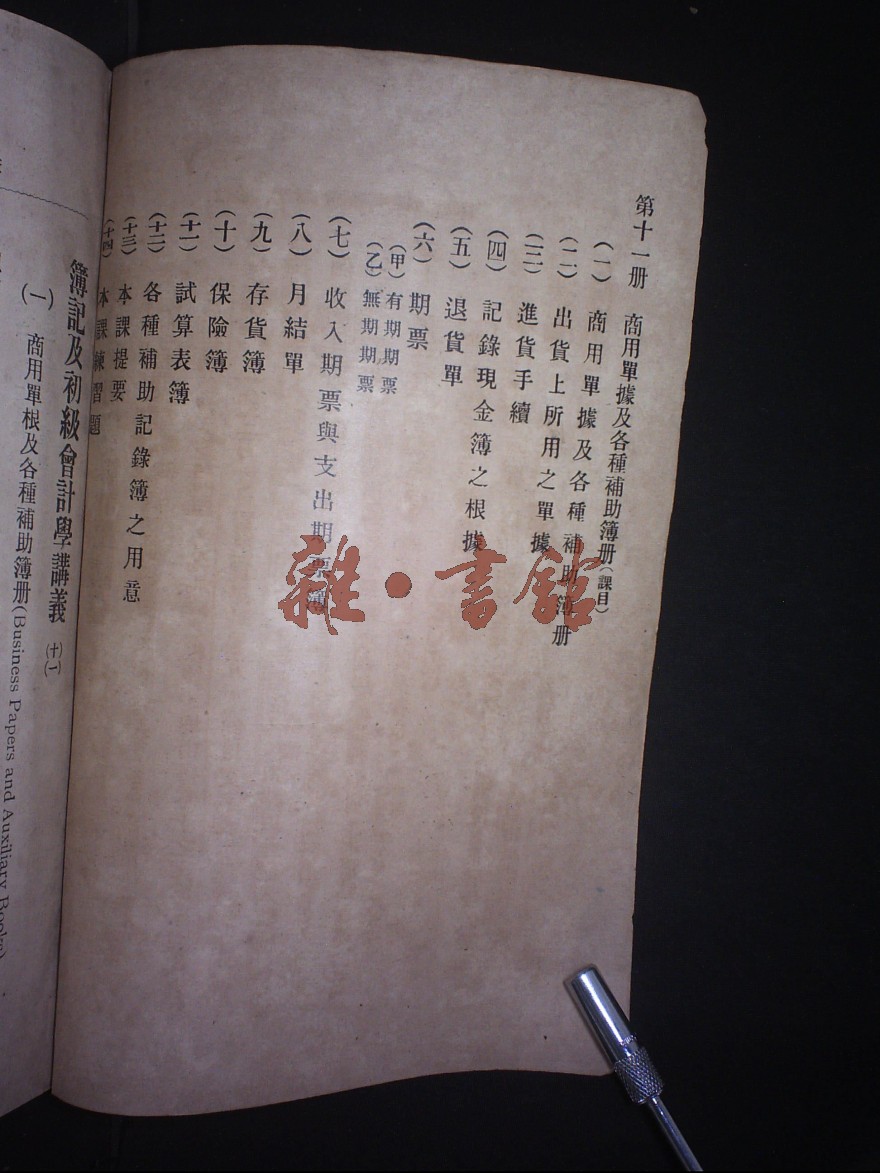 第十一册　商用單據及各種補助簿册（課目）
（一）商用單據及各種補助簿册
（二）出貨上所用之單據
（三）進貨手續
（四）記錄現金簿之根據
（五）退貨單
（六）期票
（甲）有期期票
（乙）無期期票
（七）收入期票與支出期票簿
（八）月結單
（九）存貨簿
（十）保險簿
（十一）試算表簿
（十二）各種補助記錄簿之用意
（十三）本課提要
（十四）本課練習題
簿記及初級會計學講義（十一）
（一）商用單根及各種補助簿册（Business Papers and Auxiliary Books）
雜·書館